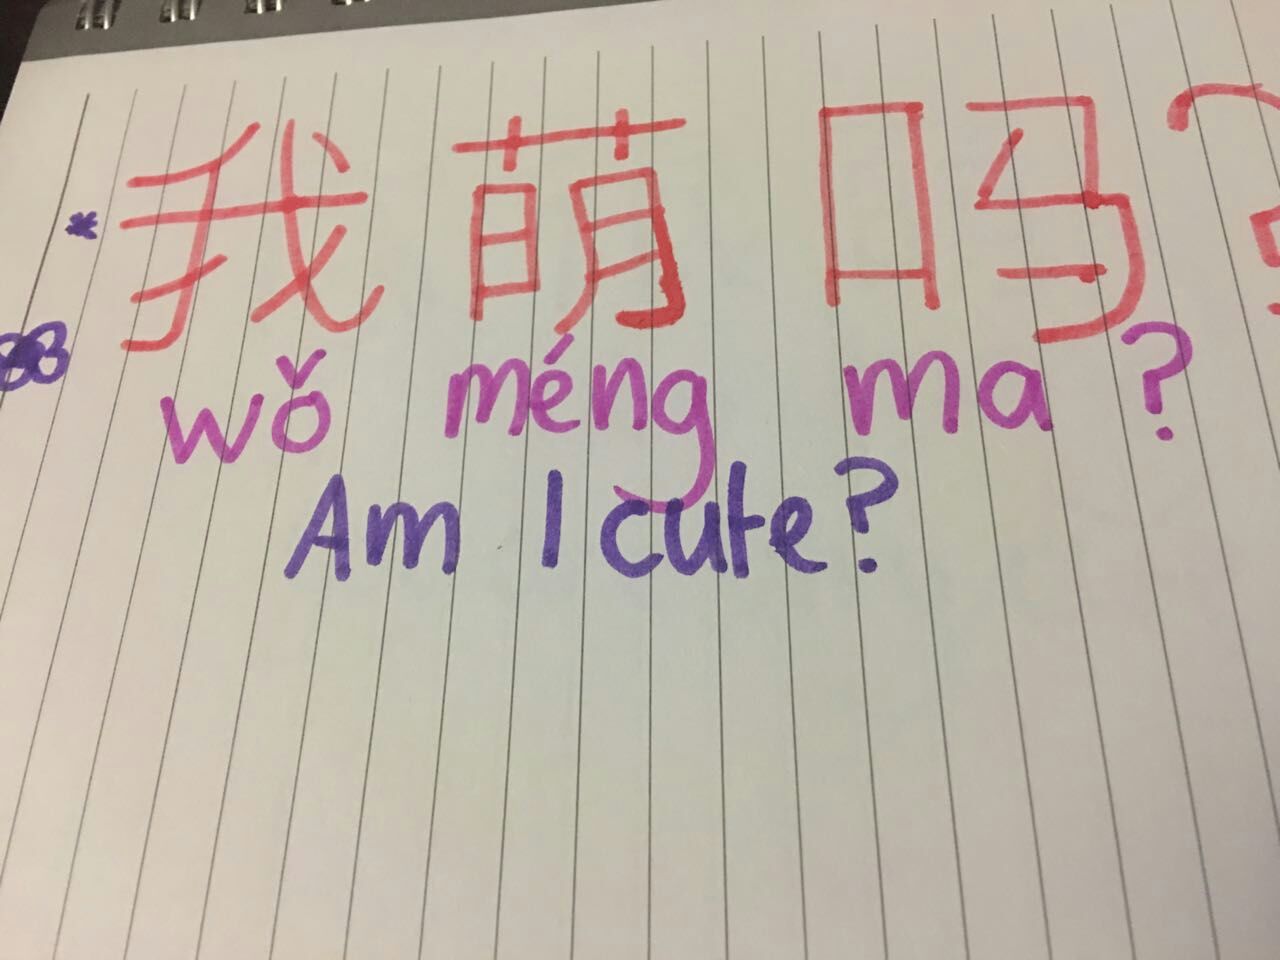 我萌吗?
wǒ méng ma?
Am I cute?